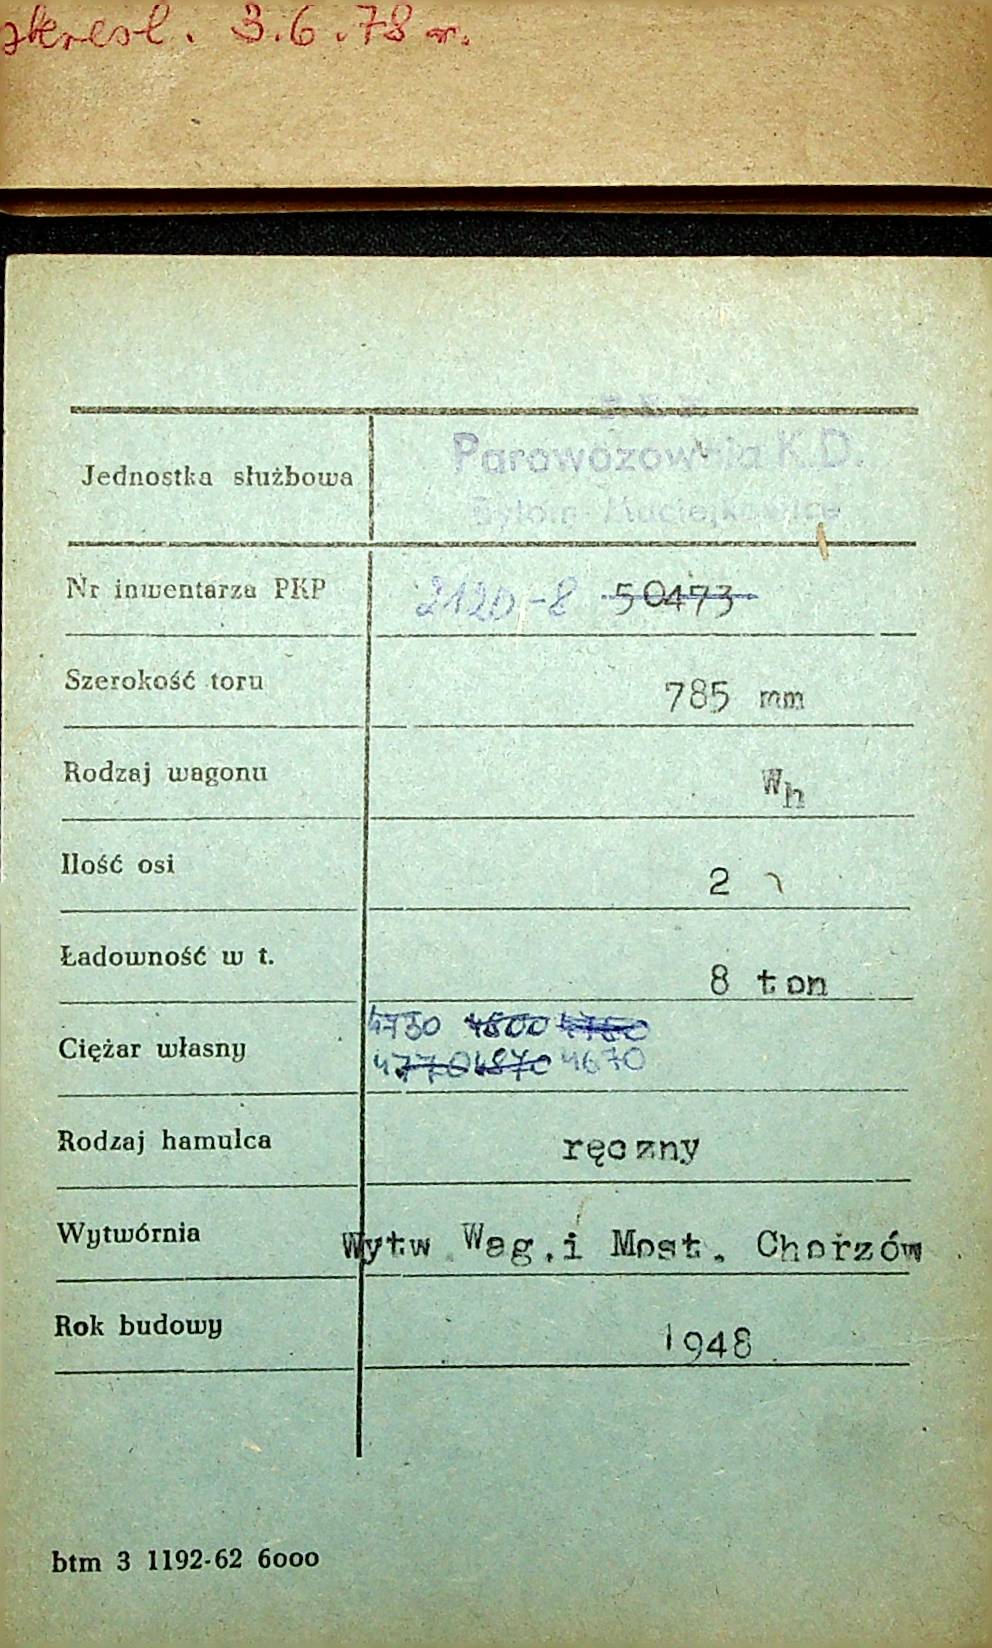 skreśl. 3.6.78 r.
Jednostka służbowa
Parowozownia K.D.
Nr inwentarza PKP 2120-8 50473
Szerokość toru 785 mm
Rodzaj wagonu Wh
Ilość osi 2
Ładowność w t. 8 ton
4730 4800 4780
Ciężar własny
4770 4870 4670
Rodzaj hamulca ręczny
Wytwórnia Wytw Wag.i Most. Chorzów
Rok budowy 1948
btm 3 1192-62 6000